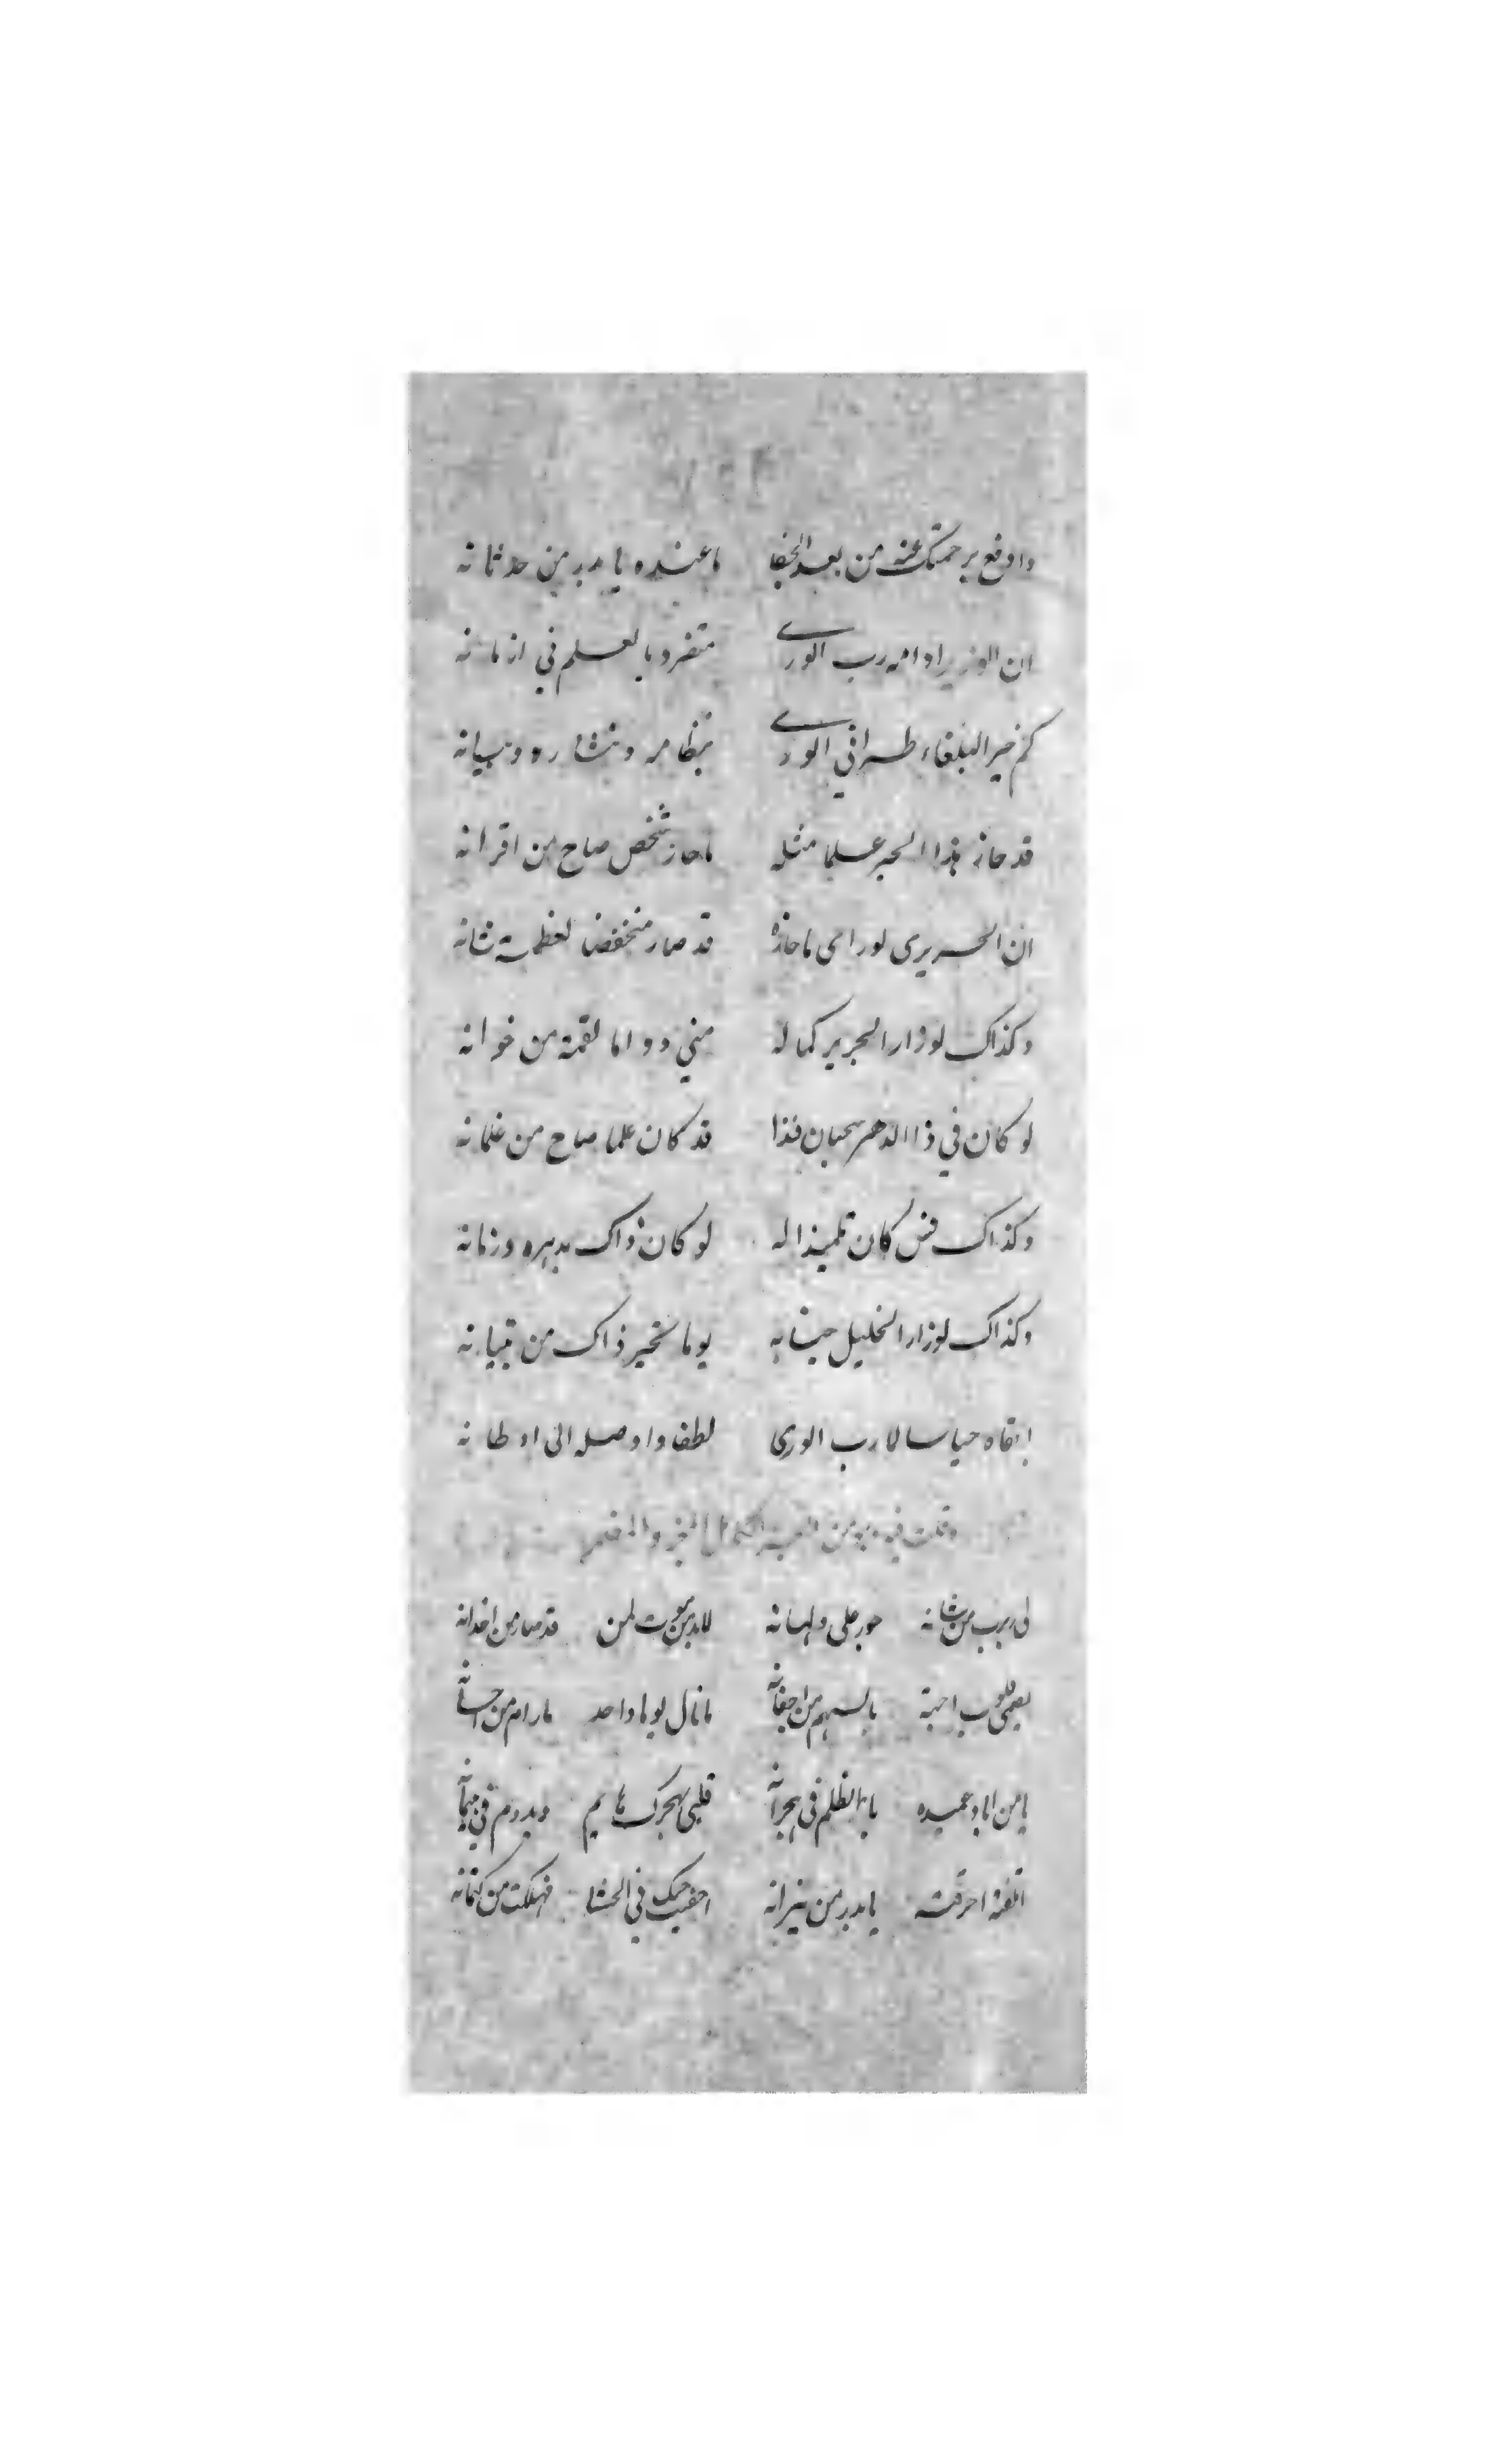 وادفع برحمتك عنه من بعد الجفا ما عنده يا بدر من حدثانه
ان الوزير ادامه رب الورے متفرد بالعلم في ازمانه
كم حير البلغاء طرا في الورے بنظامه ونثاره وبيانه
قد حاز هذا الحبر علما مثله ما حاز شخص صاح من اقرانه
ان الحريرى لو راى ما حازه قد صار منخفضا لعظمة شانه
وكذاك لو زار الجرير كماله مني دواما لقمة من خوانه
لو كان في ذا الدهر سحبان فذا قد كان علما صاح من غلمانه
وكذاك قس كان تلميذا له لو كان ذاك بدهره وزمانه
وكذاك لو زار الخليل جنابه يوما تحير ذاك من تبيانه
ابقاه حيا سالما رب الورى لطفا واوصله الى اوطانه
وقلت فيه من الكامل
لى ربرب من شانه جور على ولهانه لا بد من موت لمن قد صار من اخدانه
يصمى قلوب احبة بالسهم من اجفانه ما نال يوما واحد ما رام من احسانه
يا من اباد عميده بالظلم في هجرانه قلبى بهجرك هايم ويدوم في هيمانه
اتلفته احرقته يا بدر من نيرانه اخفيت حبك في الحشا فهلكت من كتمانه